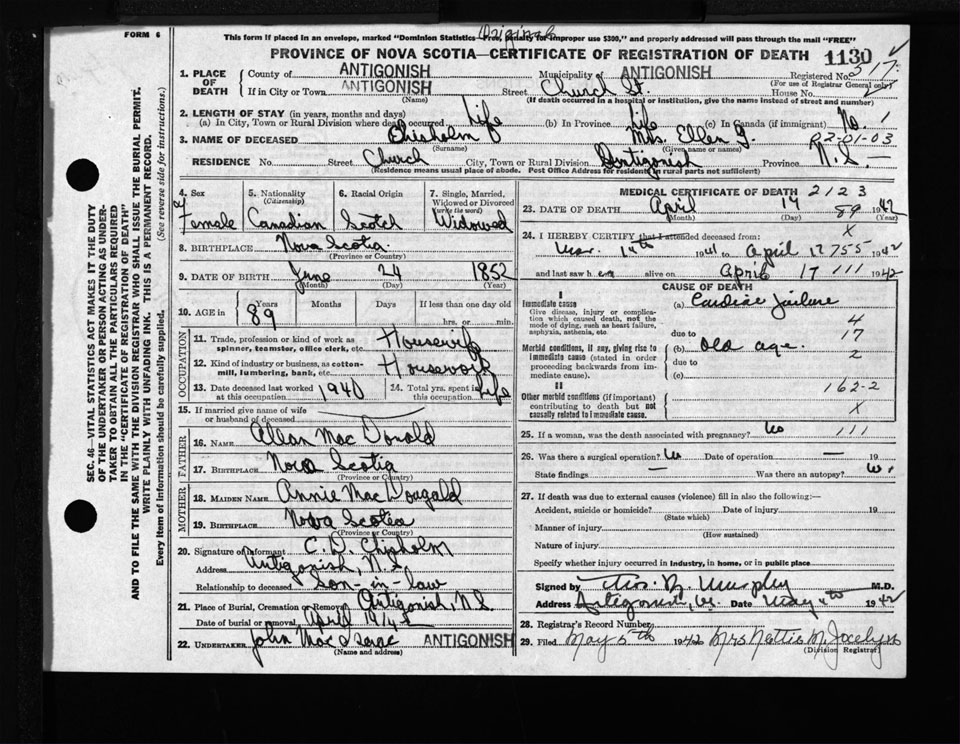 FORM 6
Original
This form if placed in an envelope, marked "Dominion Statistics—Free, penalty for improper use $300," and properly addressed will pass through the mail "FREE"
PROVINCE OF NOVA SCOTIA—CERTIFICATE OF REGISTRATION OF DEATH 1130
1. PLACE OF DEATH County of ANTIGONISH Municipality of ANTIGONISH Registered No. 517
(For use of Registrar General only)
If in City or Town ANTIGONISH Street Church St. House No.
(Name) (If death occurred in a hospital or institution, give the name instead of street and number)
2. LENGTH OF STAY (in years, months and days)
(a) In City, Town or Rural Division where death occurred Life (b) In Province Life (c) In Canada (if immigrant) No. 1
3. NAME OF DECEASED Chisholm Mrs. Ellen J. 02-01-03
(Surname) (Given name or names)
RESIDENCE No. Street Church City, Town or Rural Division Antigonish Province N.S.
(Residence means usual place of abode. Post Office Address for residents in rural parts not sufficient)
4. Sex Female
5. Nationality (Citizenship) Canadian
6. Racial Origin Scotch
7. Single, Married, Widowed or Divorced (write the word) Widowed
8. BIRTHPLACE Nova Scotia
(Province or Country)
9. DATE OF BIRTH June 24 1852
(Month) (Day) (Year)
10. AGE in Years 89 Months Days If less than one day old
hrs. or min.
OCCUPATION
11. Trade, profession or kind of work as spinner, teamster, office clerk, etc. Housewife
12. Kind of industry or business, as cotton-mill, lumbering, bank, etc. Housework
13. Date deceased last worked at this occupation 1940 14. Total yrs. spent in this occupation Life
15. If married give name of wife or husband of deceased
FATHER
16. NAME Allan MacDonald
17. BIRTHPLACE Nova Scotia
(Province or Country)
MOTHER
18. MAIDEN NAME Annie MacDougald
19. BIRTHPLACE Nova Scotia
(Province or Country)
20. Signature of Informant C. D. Chisholm
Address Antigonish, N.S.
Relationship to deceased Son-in-law
21. Place of Burial, Cremation or Removal Antigonish, N.S.
Date of burial or removal April 19/42
22. UNDERTAKER John MacIsaac ANTIGONISH
(Name and address)
MEDICAL CERTIFICATE OF DEATH 2123
23. DATE OF DEATH April 17 89 1942
(Month) (Day) (Year)
24. I HEREBY CERTIFY that I attended deceased from: X
14th 1941 to April 17 755 1942
and last saw her alive on April 17 111 1942
CAUSE OF DEATH
I
Immediate cause (a) Cardiac failure
Give disease, injury or complication which caused death, not the mode of dying, such as heart failure, asphyxia, asthenia, etc. 4
due to 17
Morbid conditions, if any, giving rise to immediate cause (stated in order proceeding backwards from immediate cause). (b) old age. 2
due to
(c)
II 162-2
Other morbid conditions (if important) contributing to death but not causally related to immediate cause. X
25. If a woman, was the death associated with pregnancy? No 111
26. Was there a surgical operation? No Date of operation — 19
State findings — Was there an autopsy? No.
27. If death was due to external causes (violence) fill in also the following:—
Accident, suicide or homicide? Date of injury 19
(State which)
Manner of injury
(How sustained)
Nature of injury
Specify whether injury occurred in industry, in home, or in public place
Signed by Murphy M.D.
Address Antigonish, N.S. Date May 4th 1942
28. Registrar's Record Number
29. Filed May 5th 1942 Mrs Nettie M. Jocelyn
(Division Registrar)
SEC. 46—VITAL STATISTICS ACT MAKES IT THE DUTY
OF THE UNDERTAKER OR PERSON ACTING AS UNDER-
TAKER TO OBTAIN ALL THE PARTICULARS REQUIRED
IN THE "CERTIFICATE OF REGISTRATION OF DEATH"
AND TO FILE THE SAME WITH THE DIVISION REGISTRAR WHO SHALL ISSUE THE BURIAL PERMIT.
WRITE PLAINLY WITH UNFADING INK. THIS IS A PERMANENT RECORD.
Every Item of Information should be carefully supplied. (See reverse side for instructions.)